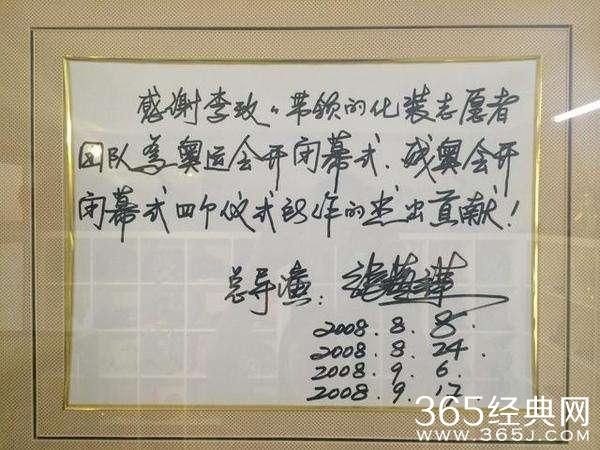 感谢李玫、带领的化装志愿者
团队為奥运会开闭幕式、残奥会开
闭幕式四个仪式所作的杰出贡献!
总导演:张艺谋
2008.8.8.
2008.8.24.
2008.9.6.
2008.9.17.
365经典网
WWW.365J.COM